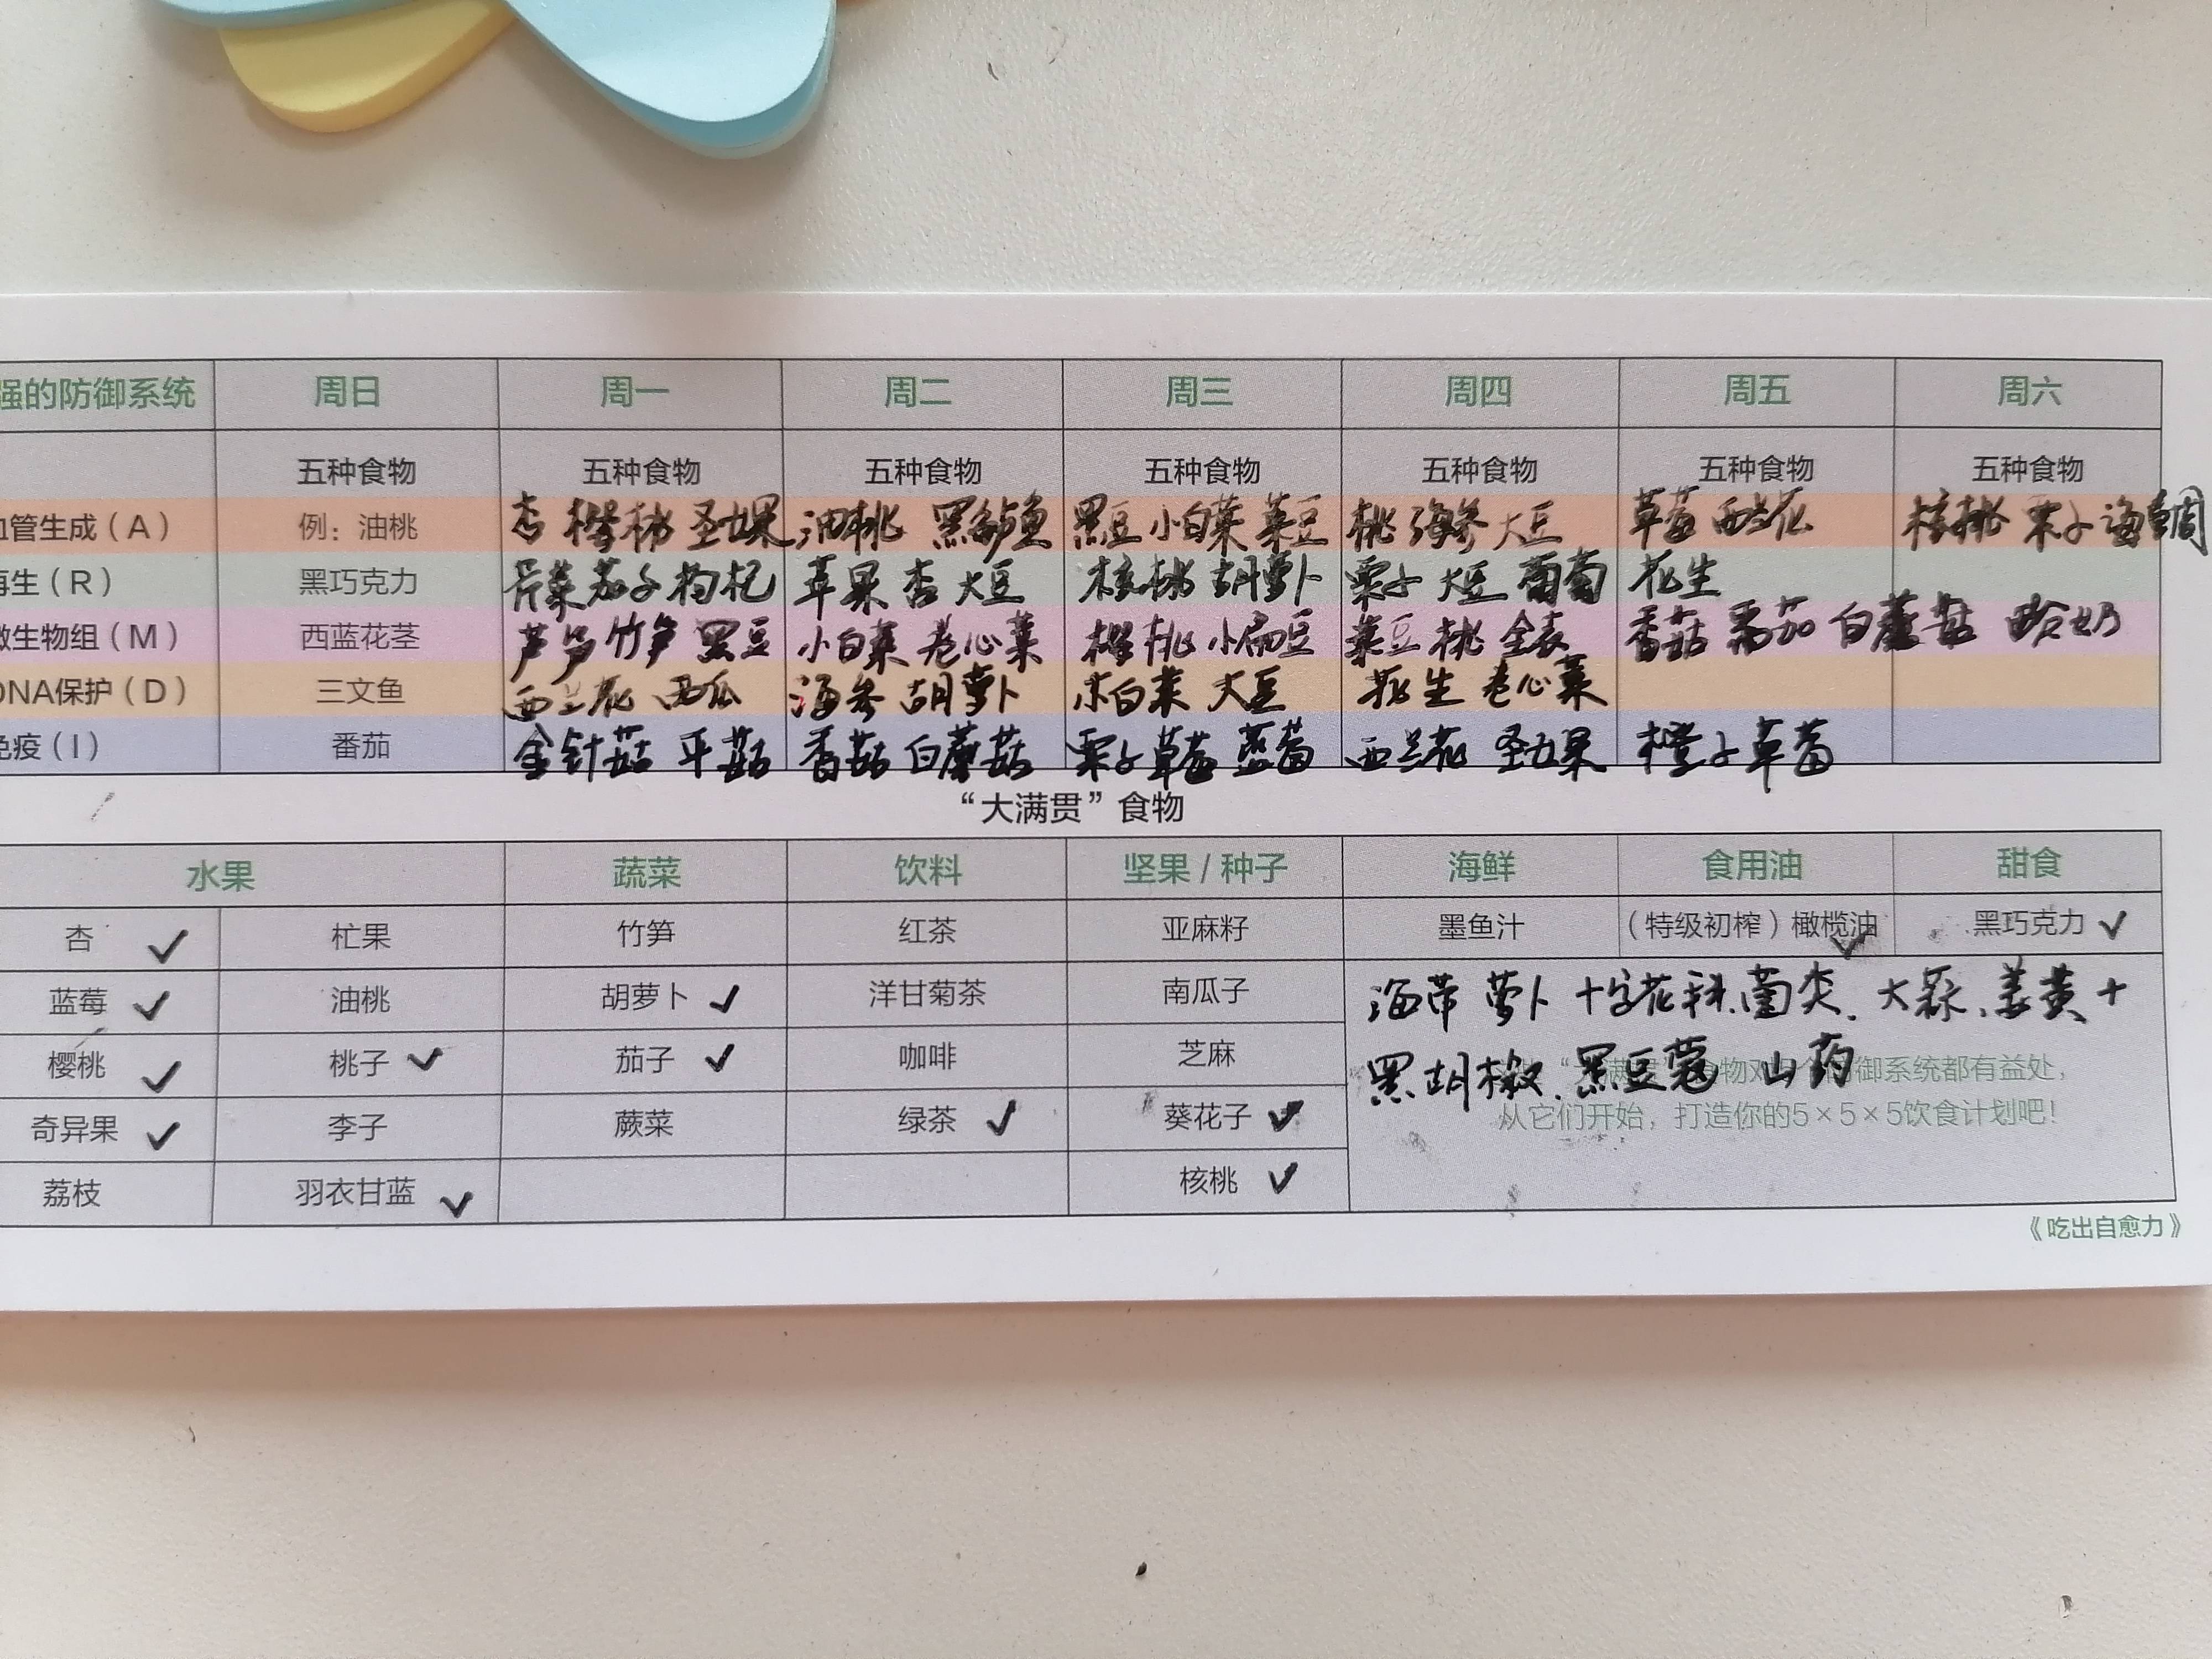 强的防御系统 周日 周一 周二 周三 周四 周五 周六
五种食物 五种食物 五种食物 五种食物 五种食物 五种食物 五种食物
血管生成（A） 例：油桃 杏 樱桃 圣女果 油桃 黑鲈鱼 黑豆 小白菜 菜豆 桃 海参 大豆 草莓 西兰花 核桃 栗子 海鱼
再生（R） 黑巧克力 芹菜 茄子 枸杞 苹果 杏 大豆 核桃 胡萝卜 栗子 大豆 葡萄 花生
微生物组（M） 西蓝花茎 芦笋 竹笋 黑豆 小白菜 卷心菜 樱桃 小扁豆 菜豆 桃 全麦 香菇 番茄 白蘑菇 酸奶
DNA保护（D） 三文鱼 西兰花 西瓜 海参 胡萝卜 小白菜 大豆 花生 卷心菜
免疫（I） 番茄 金针菇 平菇 香菇 白蘑菇 栗子 草莓 蓝莓 西兰花 圣女果 橙子 草莓
“大满贯”食物
水果 蔬菜 饮料 坚果 / 种子 海鲜 食用油 甜食
杏 ✓ 杧果 竹笋 红茶 亚麻籽 墨鱼汁 （特级初榨）橄榄油 ✓ 黑巧克力 ✓
蓝莓 ✓ 油桃 胡萝卜 ✓ 洋甘菊茶 南瓜子
海带 萝卜 十字花科.菌类. 大蒜.姜黄+
樱桃 ✓ 桃子 ✓ 茄子 ✓ 咖啡 芝麻
黑胡椒.黑豆蔻 山药
物对 御系统都有益处，
奇异果 ✓ 李子 蕨菜 绿茶 ✓ 葵花子 ✓
从它们开始，打造你的5×5×5饮食计划吧！
荔枝 羽衣甘蓝 ✓ 核桃 ✓
《吃出自愈力》